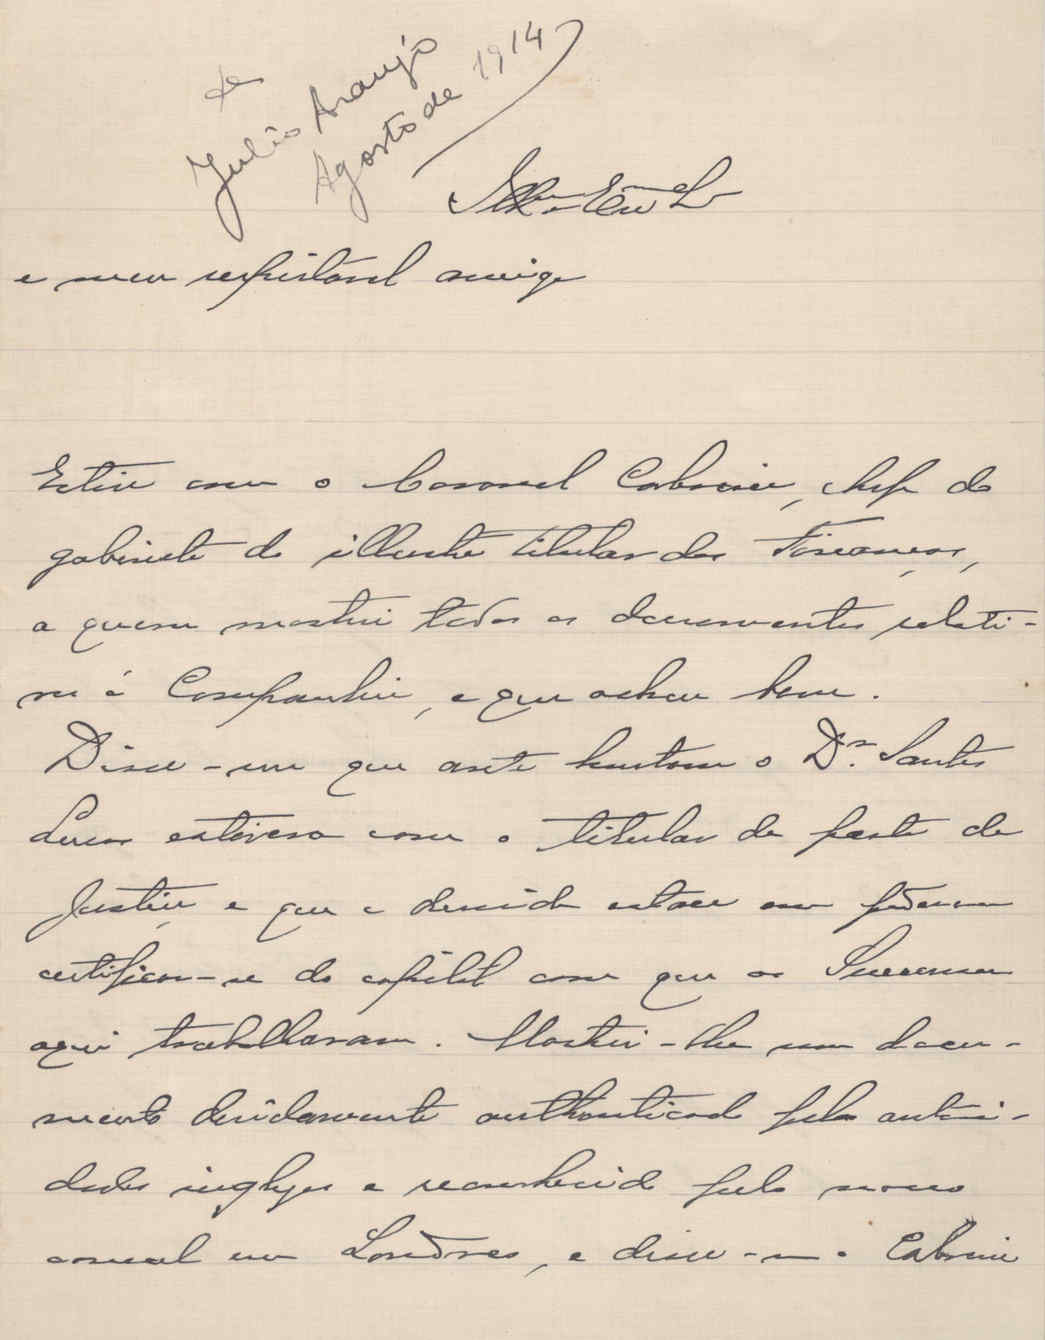 de
Julio Araujo
Agosto de 1914
Illmo Exmo Sr
e meu respeitavel amigo
Estive com o Coronel Cabrinha, chefe do
gabinete do illustre titular das Finanças,
a quem mostrei todos os documentos relati-
vos á Companhia, e que achou bem.
Disse-me que ante hontem o Dr. Santos
Lucas estivera com o titular da pasta da
Justiça e que a duvida estava em poderem
certificar-se do capital com que os
aqui trabalharam. Mostrei-lhe um docu-
mento devidamente authenticado pelas autori-
dades inglezas e reconhecido pelo nosso
consul em Londres, e disse-me o